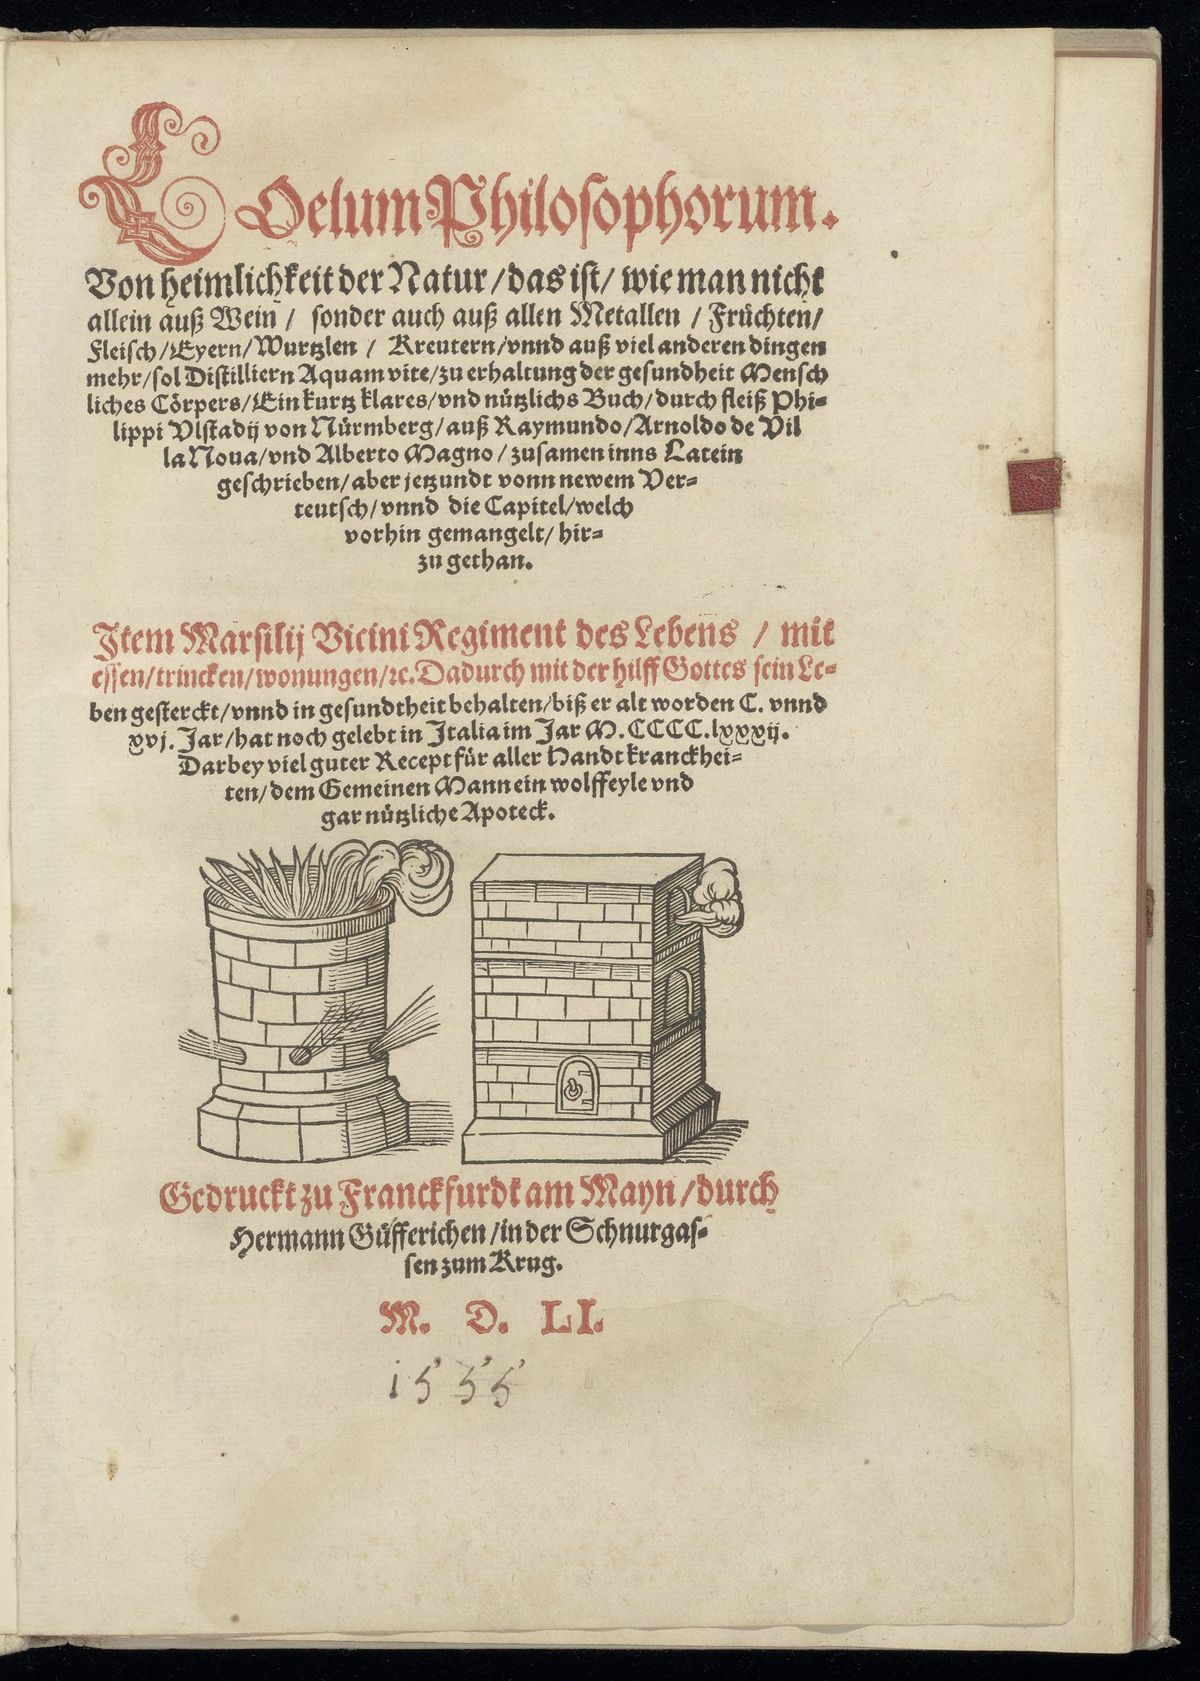 COelum Philosophorum.
Von heimlichkeit der Natur / das ist / wie man nicht
allein auß Wein / sonder auch auß allen Metallen / Früchten /
Fleisch / Eyern / Wurtzlen / Kreutern / vnnd auß viel anderen dingen
mehr / sol Distilliern Aquam vite / zu erhaltung der gesundheit Mensch
liches Cörpers / Ein kurtz klares / vnd nützlichs Buch / durch fleiß Phi-
lippi Vlstadij von Nürmberg / auß Raymundo / Arnoldo de Vil
la Noua / vnd Alberto Magno / zusamen inns Latein
geschrieben / aber jetzundt vonn newem Ver-
teutsch / vnnd die Capitel / welch
vorhin gemangelt / hir-
zu gethan.
Item Marsilij Vicini Regiment des Lebens / mit
essen / trincken / wonungen / ꝛc. Dadurch mit der hilff Gottes sein Le-
ben gesterckt / vnnd in gesundtheit behalten / biß er alt worden C. vnnd
xvj. Jar / hat noch gelebt in Italia im Jar M.CCCC.lxxxij.
Darbey viel guter Recept für aller Handt kranckhei-
ten / dem Gemeinen Mann ein wolffeyle vnd
gar nützliche Apoteck.
Gedruckt zu Franckfurdt am Mayn / durch
Hermann Gülfferichen / in der Schnurgas-
sen zum Krug.
M. D. LI.
1555